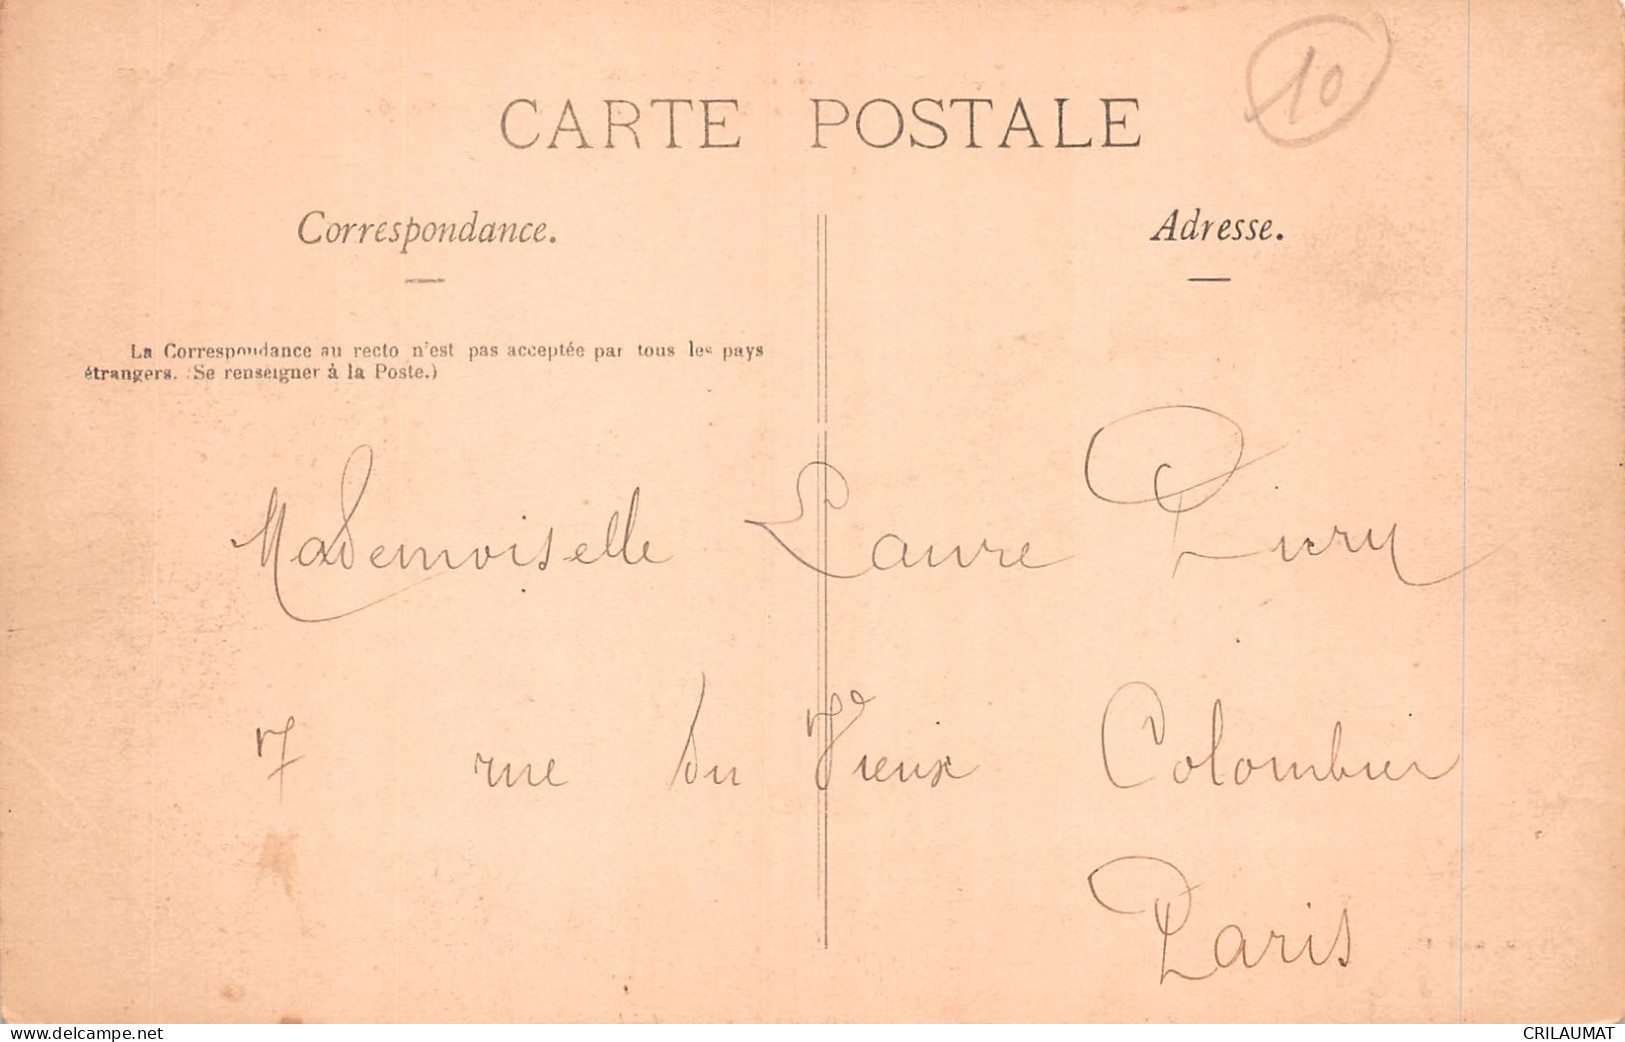 10
CARTE POSTALE
Correspondance.
Adresse.
La Correspondance au recto n'est pas acceptée par tous les pays
étrangers. (Se renseigner à la Poste.)
Mademoiselle Laure
7 rue du Vieux Colombier
Paris
www.delcampe.net
CRILAUMAT